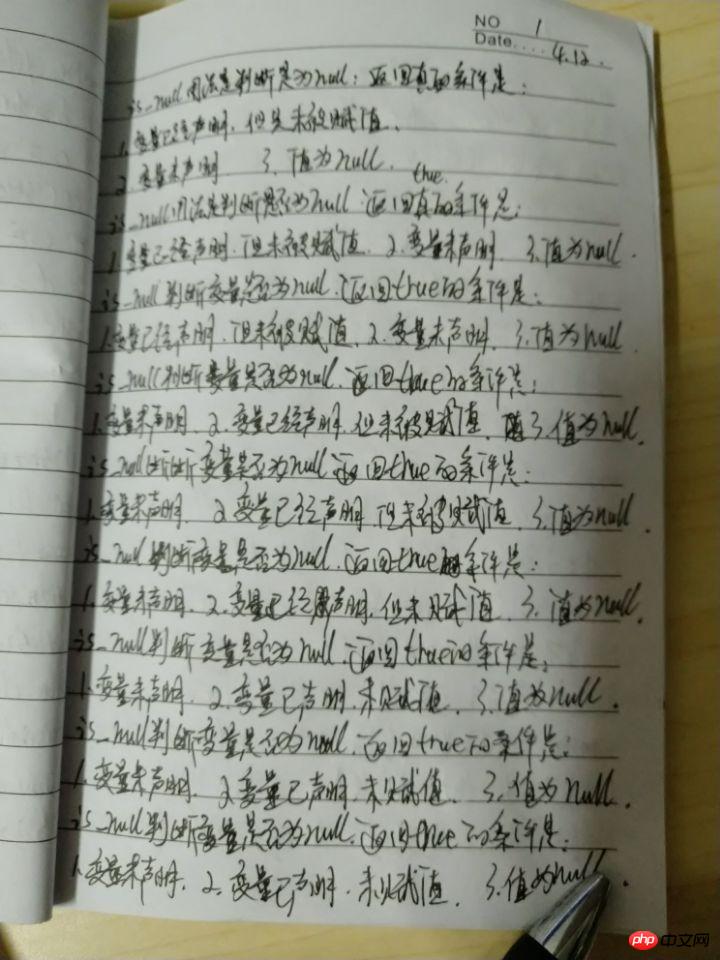 NO 1
Date.... 4.12.
is_null 用法是判断是为null：返回真的条件是：
1. 变量已经声明，但是未被赋值，
2. 变量未声明 3. 值为null.
true.
is_null用法是判断是否为null 返回真的条件是：
1. 变量已经声明，但未被赋值，2. 变量未声明，3. 值为null.
is_null 判断变量是否为null，返回true的条件是：
1. 变量已经声明，但未被赋值，2. 变量未声明，3. 值为null
is_null判断变量是否为null，返回true的条件是：
1. 变量未声明，2. 变量已经声明，但未被赋值，3. 值为null.
is_null断变量是否为null 返回true的条件是：
1. 变量未声明，2. 变量已经声明，但未被赋值，3. 值为null.
is_null 判断变量是否为null，返回true的条件是：
1. 变量未声明，2. 变量已经声明，但未赋值，3. 值为null.
is_null判断变量是否为null，返回true的条件是：
1. 变量未声明，2. 变量已声明，未赋值，3. 值为null.
is_null判断变量是否为null，返回true的条件是：
1. 变量未声明，2. 变量已声明，未赋值，3. 值为null.
is_null判断变量是否为null，返回true的条件是：
1. 变量未声明，2. 变量已声明，未赋值，3. 值为null.
php 中文网